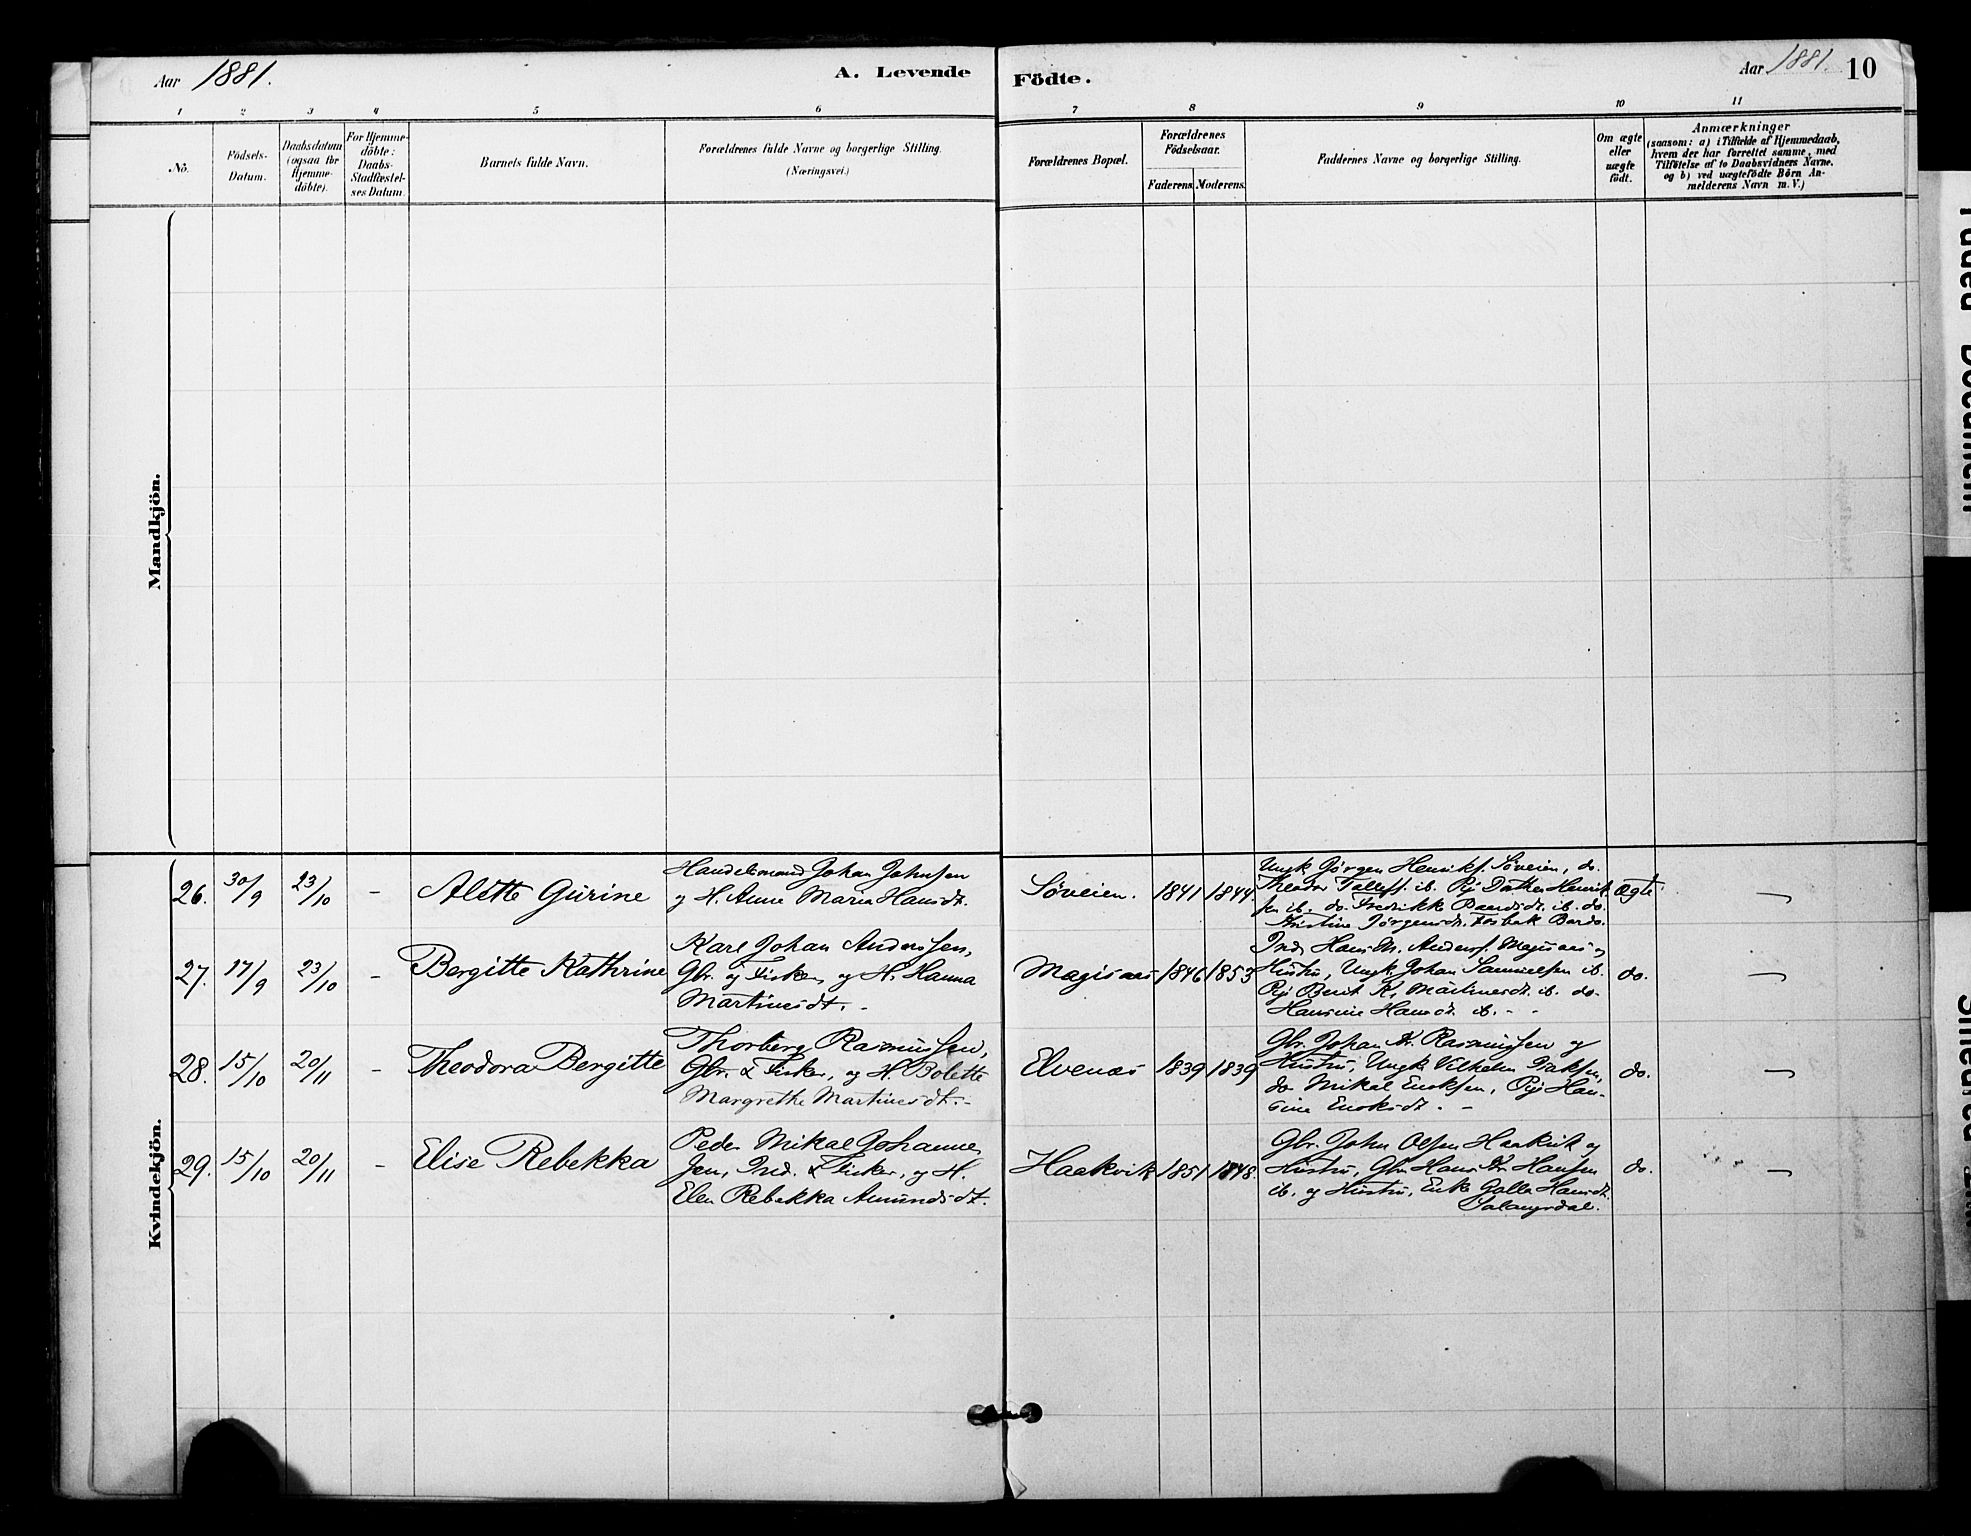 Aar 1881.
A. Levende
Födte.
Aar 1881.
10
1 2 3 4 5 6 7 8 9 10 11
No.
Födsels-
Datum.
Daabsdatum
(ogsaa for
Hjemme-
döbte).
For Hjemme-
döbte:
Daabs-
Stadfæstel-
ses Datum.
Barnets fulde Navn.
Forældrenes fulde Navne og borgerlige Stilling.
(Næringsvei.)
Forældrenes Bopæl.
Forældrenes
Födselsaar.
Faderens.
Moderens.
Faddernes Navne og borgerlige Stilling.
Om ægte
eller
uægte
født.
Anmærkninger
(saasom: a) i Tilfælde af Hjemmedaab,
hvem der har forrettet samme, med
Tilföielse af to Daabsvidners Navne.
og b) ved uægtefödte Börn An-
melderens Navn m. V.)
Mandkjön.
Kvindekjön.
26.
30/9
23/10
-
Alette Gurine
Handelsmand Johan Johnsen
og H. Anne Marie Hansdt.
Söveien.
1841
1844.
Ungk Jörgen Henriks. Söveien, do.
Theodor Tollefs. ib. Pij Dorthea Henrik
sen ib. do. Fredrikke Baardsdt. ib. do.
Kristine Jörgensdt. Fosbak Bardo.
ægte
27.
17/9
23/10
-
Bergitte Kathrine
Karl Johan Anderssen,
Gbr. og Fisker, og H. Hanna
Martinesdt. -
Magisnes
1846
1853
Ind. Hans M. Anders. Magisnes og
Hustru, Ungk Johan Samuelsen ib.
Pij Berit K. Martinesdt. ib. do.
Hansine Hansdt. ib. - -
do.
28.
15/10
20/11
-
Theodora Bergitte
Thorberg Rasmussen,
Gbr. & Fisker, og H. Bolette
Margrethe Martinesdt. -
Elvenæs
1839
1839
Gbr. Johan Kr. Rasmussen og
Hustru, Ungk Vilhelm Isaksen,
do Mikal Enoksen, Pij Han-
sine Enoksdt. -
do.
29.
15/10
20/11
-
Elise Rebekka
Peder Mikal Johannes
sen, Ind. & Fisker, og H.
Elen Rebekka Amundsdt.
Haakvik
1851
1848.
Gbr. John Olsen Haakvik og
Hustru, Gbr Hans Kr. Hansen
ib. og Hustru, Enke Golla Hansdt.
Salangsdal.
do.